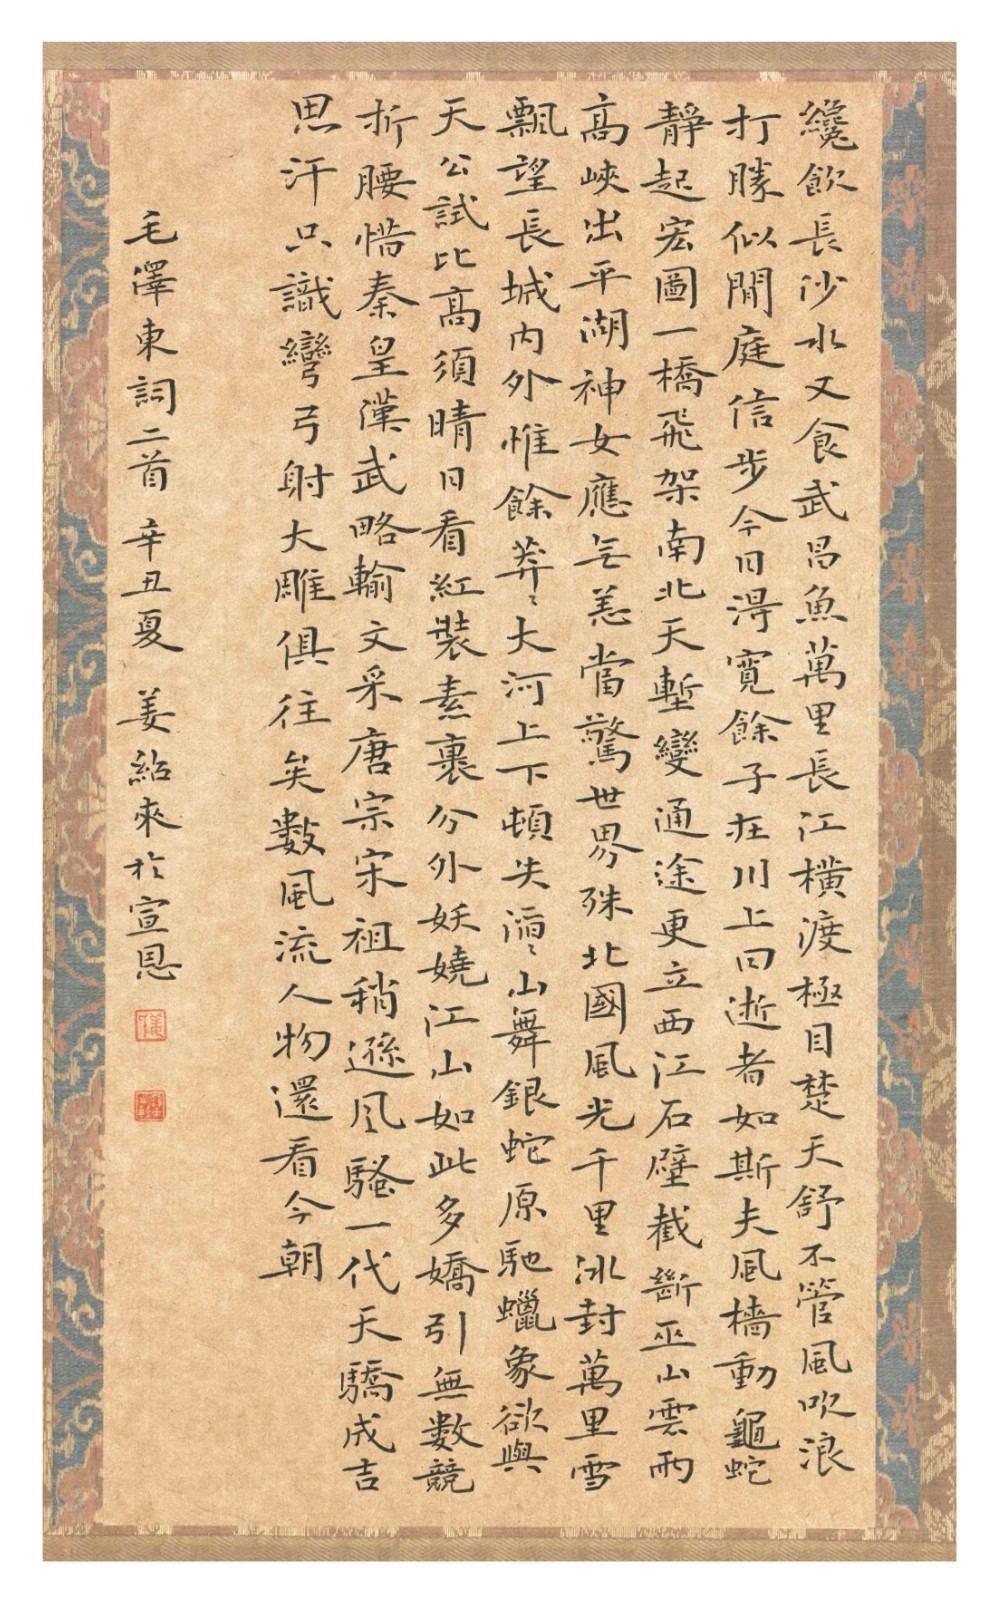 纔飲長沙水又食武昌魚萬里長江橫渡極目楚天舒不管風吹浪
打勝似閒庭信步今日得寬餘子在川上曰逝者如斯夫風檣動龜蛇
靜起宏圖一橋飛架南北天塹變通途更立西江石壁截斷巫山雲雨
高峽出平湖神女應无恙當驚世界殊北國風光千里冰封萬里雪
飄望長城內外惟餘莽〻大河上下頓失滔〻山舞銀蛇原馳蠟象欲與
天公試比高須晴日看紅裝素裹分外妖嬈江山如此多嬌引無數競
折腰惜秦皇漢武略輸文采唐宗宋祖稍遜风騷一代天驕成吉
思汗只識彎弓射大雕俱往矣數風流人物還看今朝
毛澤東詞二首 辛丑夏 姜紹來於宣恩